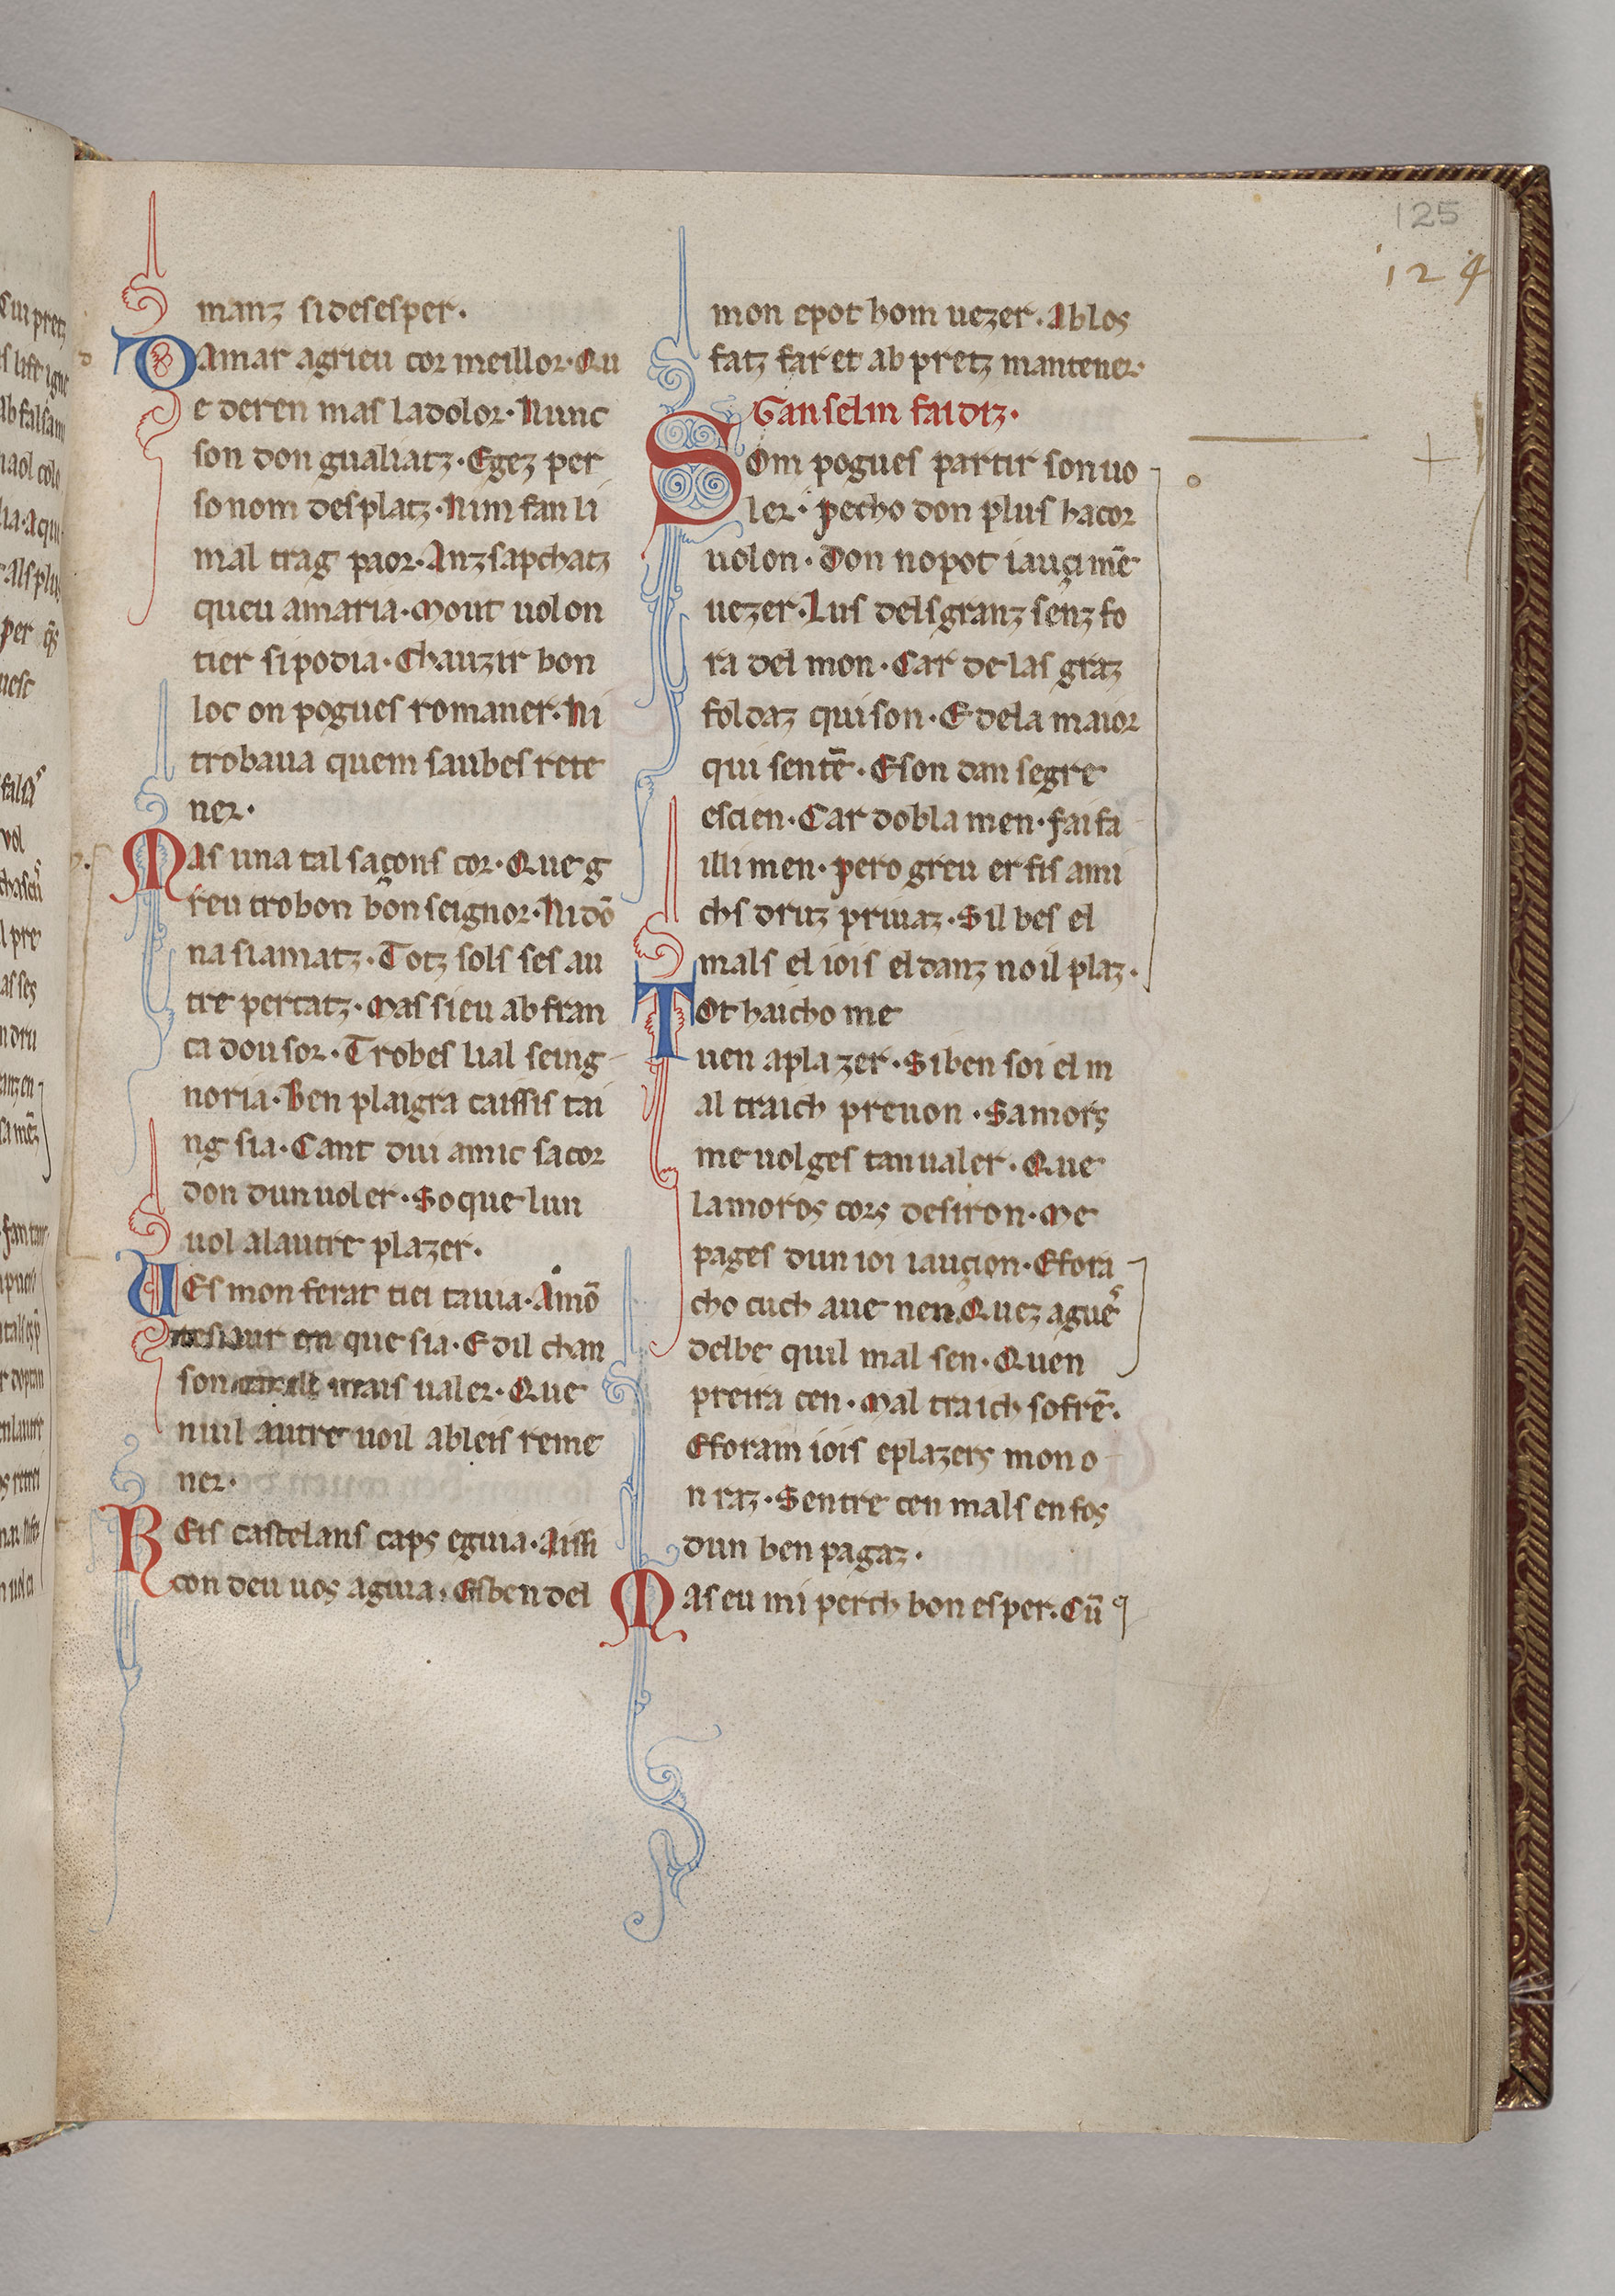 125
124
manz si desesper.
Damar agrieu cor meillor. Qu
e deren mas la dolor. Nunc
son don gualiatz. Egez per
so nom desplatz. Nim fan li
mal trag paor. Anz sapchatz
queu amaria. Mout uolon
tier si podia. Chauzir bon
loc on pogues romaner. Ni
trobaua quem saubes rete
ner.
Mas una tal saçons cor. Que g
reu trobon bon seignor. Ni dō
na siamatz. Totz sols ses au
tre percatz. Mas sieu ab fran
ca dousor. Trobes lial seing
noria. Ben plaigra caissis tai
ng sia. Cant dui amic sacor
don dun uoler. So que lun
uol alautre plazer.
Ues mon ferat tiei tauia. Amō
que sia. E dil chan
son mais ualer. Que
nuil autre uoil ableis reme
ner.
Reis castelans caps eguia. Aissi
con deu uos aguia. Esben del
mon epot hom uezer. Ab los
fatz far et ab pretz mantener.
Ganselm faidiz.
Som pogues partir son uo
ler. Pecho don plus hacor
uolon. Don no pot iauçimē
uezer. Lus dels granz senz fo
ra del mon. Car de las graz
foldaz qui son. E dela maior
qui sentē. Eson dan segre
escien. Car dobla men. fai fa
illi men. pero greu er fis ami
chs druz priuaz. Sil bes el
mals el iois el danz no il plaz.
Tot haicho me
uen apla zer. Si ben soi el m
al traich preuon. Samors
me uolges tan ualer. Que
lamoros cors desiron. Me
pages dun ioi iauçion. Efora
cho cuch aue nen. Quez aguēs
delbe quil mal sen. Quen
preira cen. Mal traich sofrē.
Eforam iois eplazers mon o
n raz. Sentre cen mals en fos
dun ben pagaz.
Mas eu mi perch bon esper. Cū q